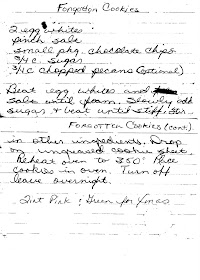 Forgotten Cookies
2 egg whites
pinch salt
small pkg. chocolate chips
3/4 c. sugar
3/4 c chopped pecans (optional)
Beat egg whites and
salt until foam. Slowly add
sugar & beat until stiff. Stir
FORGOTTEN Cookies (cont.)
in other ingredients. Drop
on ungreased cookie sheet.
Preheat oven to 350° Place
cookies in oven. Turn off
leave overnight.
Tint Pink & Green for Xmas